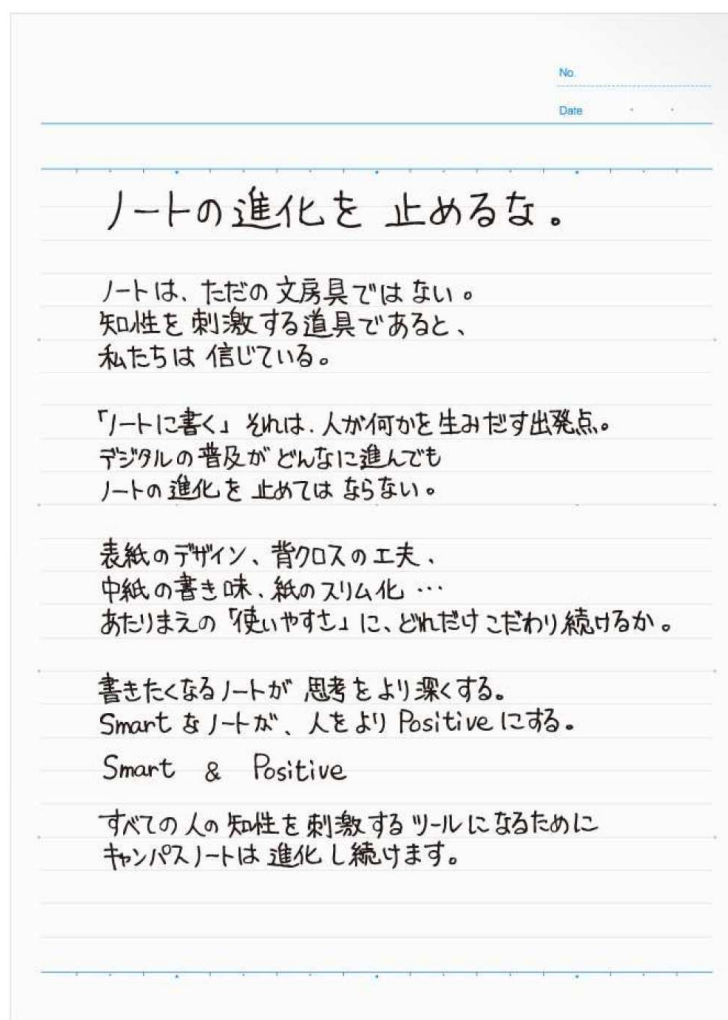 No.
Date
ノートの進化を 止めるな。
ノートは、ただの文房具ではない。
知性を刺激する道具であると、
私たちは信じている。
「ノートに書く」それは、人が何かを生みだす出発点。
デジタルの普及がどんなに進んでも
ノートの進化を止めてはならない。
表紙のデザイン、背クロスの工夫、
中紙の書き味、紙のスリム化…
あたりまえの「使いやすさ」に、どれだけこだわり続けるか。
書きたくなるノートが思考をより深くする。
Smartなノートが、人をよりPositiveにする。
Smart & Positive
すべての人の知性を刺激するツールになるために
キャンパスノートは進化し続けます。